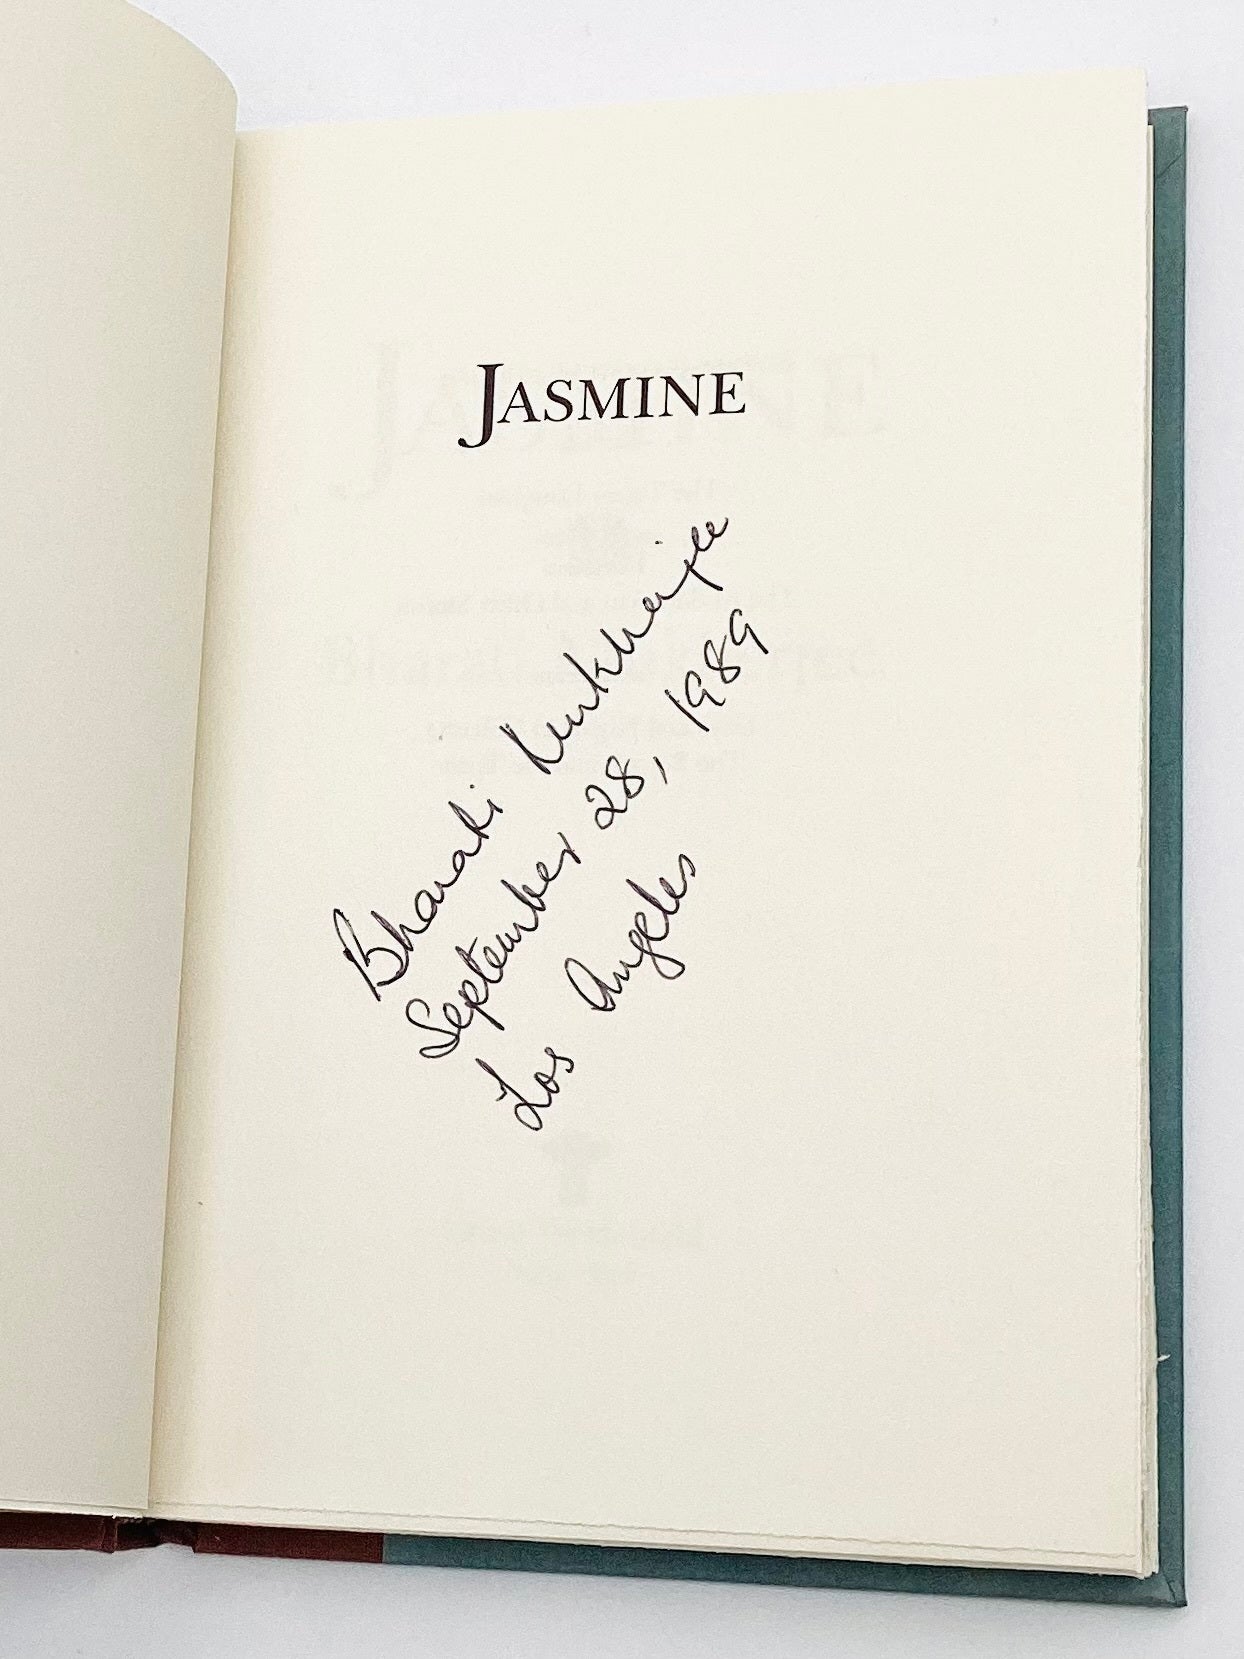 JASMINE
Bharati Mukherjee
September 28, 1989
Los Angeles